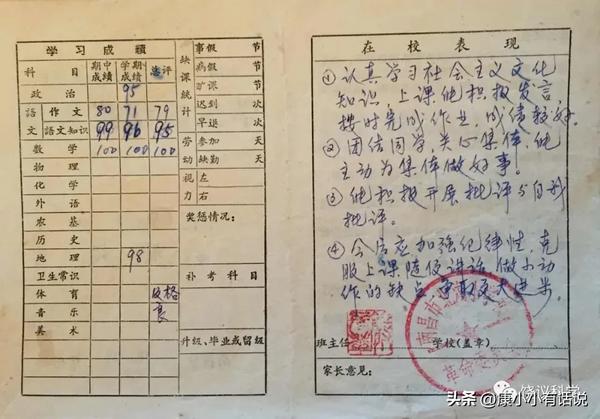 学习成绩
科目 期中成绩 学期成绩 总评
政治 95
語 作文 80 71 79
文 語文知识 99 96 95
数学 100 100 100
物理
化学
外语
农基
历史
地理 98
卫生常识
体育 及格
音乐 良
美术
缺课统计
事假 节
病假 节
旷课 节
迟到 次
早退 次
劳动
参加 天
缺勤 天
视力
左
右
奖惩情况：
补考科目
升级、毕业或留级
在校表现
①认真学习社会主义文化
知识，上课能积极发言，
按时完成作业，成绩较好。
②团结同学，关心集体，能
主动为集体做好事。
③能积极开展批评与自我
批评。
④今后应加强纪律性，克
服上课随便讲话，做小动
作的缺点，争取更大进步。
班主任
学校(盖章)
南昌市
革命委员会
家长意见：
饶议科学
头条 @康小小有话说